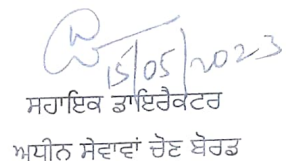 15/05/2023
ਸਹਾਇਕ ਡਾਇਰੈਕਟਰ
ਅਧੀਨ ਸੇਵਾਵਾਂ ਚੋਣ ਬੋਰਡ